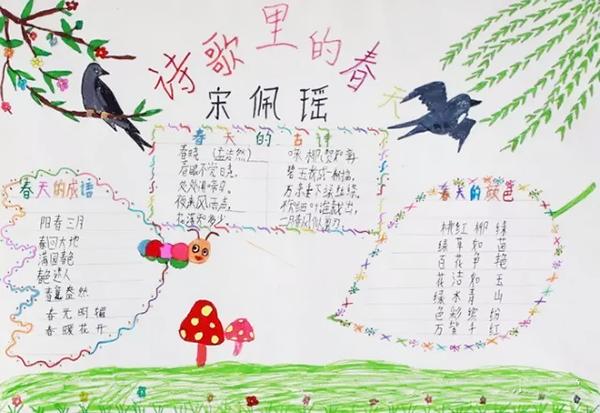 诗歌里的春天
宋佩瑶
春天的古诗
春晓（孟浩然）
春眠不觉晓，
处处闻啼鸟。
夜来风雨声，
花落知多少。
咏柳（贺知章）
碧玉妆成一树高，
万条垂下绿丝绦。
二月春风似剪刀。
春天的成语
阳春三月
春回大地
满园春色
春色
春意盎然
春光明媚
春暖花开
春天的颜色
桃红柳绿
绿草如茵
百花争艳
花洁如玉
绿水青山
色彩缤纷
万紫千红